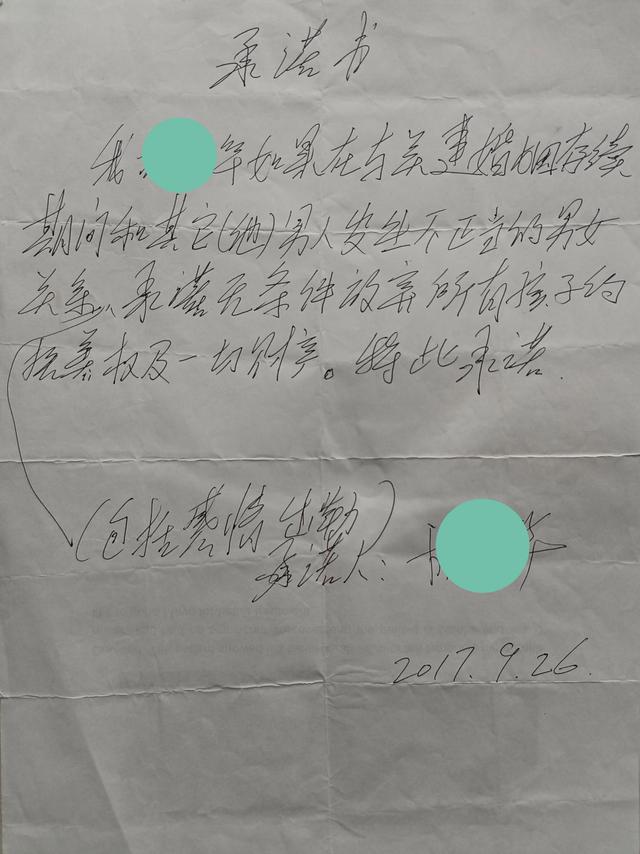 承诺书
我 如果在与关建婚姻存续
期间和其它(他)男人发生不正当的男女
关系，承诺无条件放弃所有孩子的
抚养权及一切财产。特此承诺.
(包括感情出轨)
承诺人:
2017.9.26.